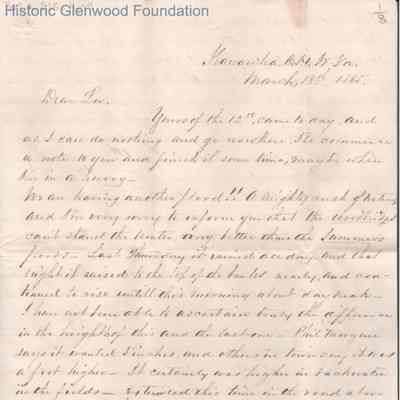 Historic Glenwood Foundation
1/8
Kanawha C.H. W. Va.
March, 18th 1865.
Dear Lov.
Yours of the 12th, came to day, and
as I can do nothing and go nowhere I'll commence
a note to you and finish it some time, maybe when
I'm in a hurry—
We are having another flood!! A mighty rush of waters
and I'm very sorry to inform you that the woodbridge
can't stand the winter, very better than the Summers
floods— Last Thursday it rained all day, and that
night it raised to the top of the banks nearly, and con-
tinued to rise untill this morning about day break—
I have not been able to ascertain truly the difference
in the heights of this and the last one— Phil
says it wanted 5 inches, and others in town say it was
a foot higher— It certainly was higher in backwater
in the fields— extended this time in the road above